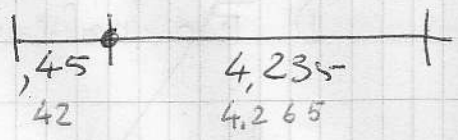 ,45 4,235
42 4.265